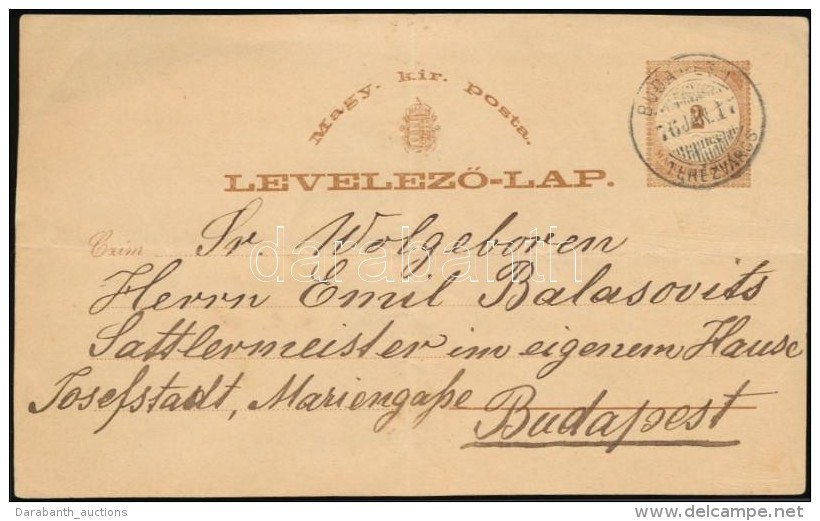 Magy. kir. posta.
BUDAPEST
76 JAN. 17
2
TERÉZVÁROS
LEVELEZŐ-LAP.
Czim Sr. Wolgeboren
darabanth
Herrn Emil Balasovits
Sattlermeister im eigenem Hause
Josefstadt, Mariengaße
Budapest
Darabanth_auctions
delcampe.net